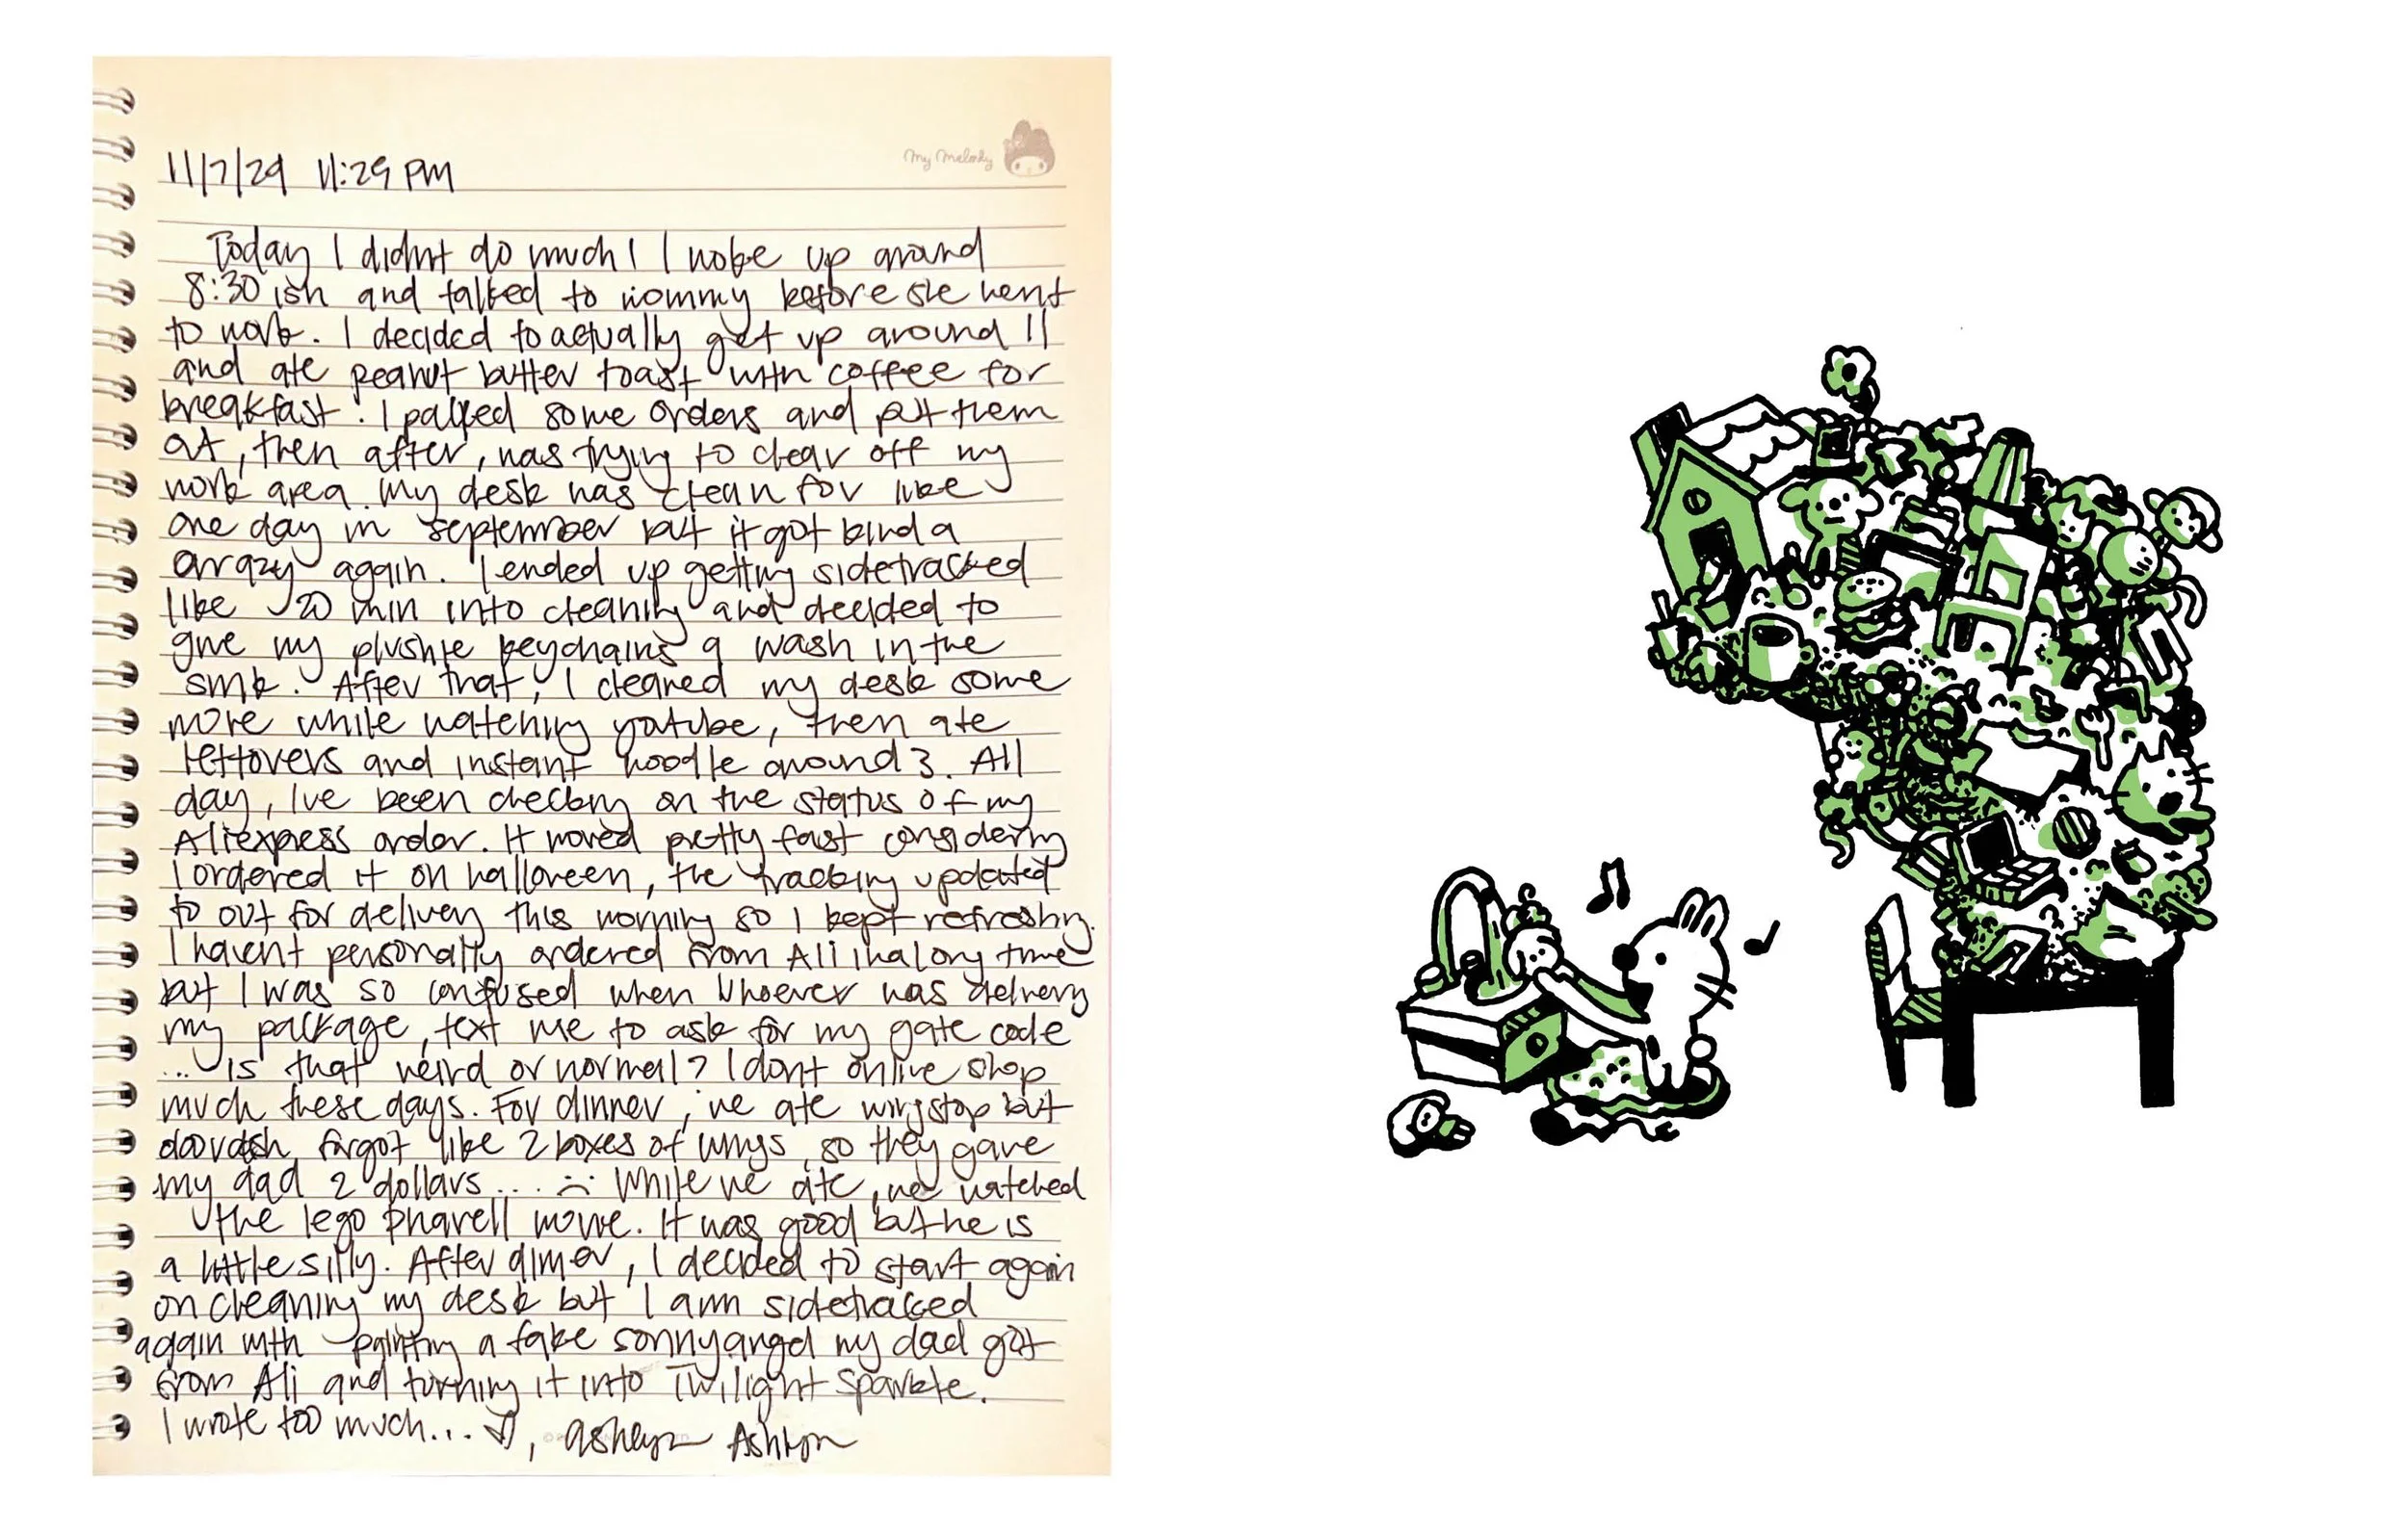 My Melody
11/7/24 11:29 PM
Today I didnt do much! I woke up around
8:30 ish and talked to mommy before she went
to work. I decided to actually get up around 11
and ate peanut butter toast with coffee for
breakfast. I packed some orders and put them
out, then after, was trying to clear off my
work area. My desk was clean for like
one day in september but it got kind a
crazy again. I ended up getting sidetracked
like 20 min into cleaning and decided to
give my plushie keychains a wash in the
sink. After that, I cleaned my desk some
more while watching youtube, then ate
leftovers and instant noodle around 3. All
day, Ive been checking on the status of my
Aliexpress order. It moved pretty fast considering
I ordered it on halloween, the tracking updated
to out for delivery this morning so I kept refreshing.
I havent personally ordered from Ali in a long time
but I was so confused when whoever was delivery
my package, text me to ask for my gate code
... is that weird or normal? I dont online shop
much these days. For dinner, we ate wingstop but
doordash forgot like 2 boxes of wings, so they gave
my dad 2 dollars... :( While we ate, we watched
the lego pharell movie. It was good but he is
a little silly. After dinner, I decided to start again
on cleaning my desk but I am sidetracked
again with painting a fake sonnyangel my dad got
from Ali and turning it into Twilight Sparkle.
I wrote too much... , Ashlyn